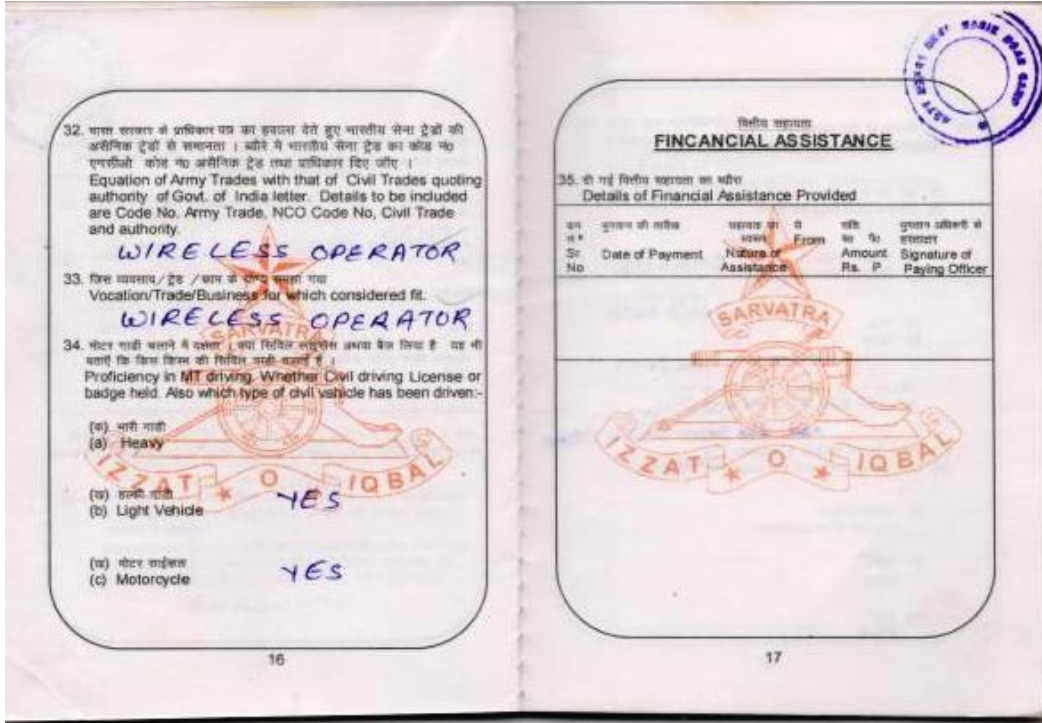 32. भारत सरकार से प्राधिकार पत्र का हवाला देते हुए भारतीय सेना ट्रेडों की
असैनिक ट्रेडों से समानता । ब्यौरे में भारतीय सेना ट्रेड का कोड नं०
एनसीओ कोड नं० असैनिक ट्रेड तथा प्राधिकार दिए जाँए ।
Equation of Army Trades with that of Civil Trades quoting
authority of Govt. of India letter. Details to be included
are Code No, Army Trade, NCO Code No, Civil Trade
and authority.
WIRELESS OPERATOR
33. जिस व्यवसाय/ट्रेड /काम के योग्य समझा गया
Vocation/Trade/Business for which considered fit.
WIRELESS OPERATOR
34. मोटर गाडी चलाने में दक्षता । क्या सिविल लाइसेंस अथवा बैज लिया है यह भी
बताएँ कि किस किस्म की सिविल गाडी चलाई है ।
Proficiency in MT driving. Whether Civil driving License or
badge held. Also which type of civil vehicle has been driven:-
(क) भारी गाडी
(a) Heavy
(ख) हल्की गाडी
(b) Light Vehicle YES
(ख) मोटर साईकल
(c) Motorcycle YES
SARVATRA
IZZAT O IQBAL
16
वित्तीय सहायता
FINCANCIAL ASSISTANCE
35. दी गई वित्तीय सहायता का ब्यौरा
Details of Financial Assistance Provided
भुगतान की तारीख सहायता का से राशि भुगतान अधिकारी से
स्वरूप From हस्ताक्षर
Sr Date of Payment Nature of Amount Signature of
No Assistance Rs. P Paying Officer
SARVATRA
IZZAT O IQBAL
17